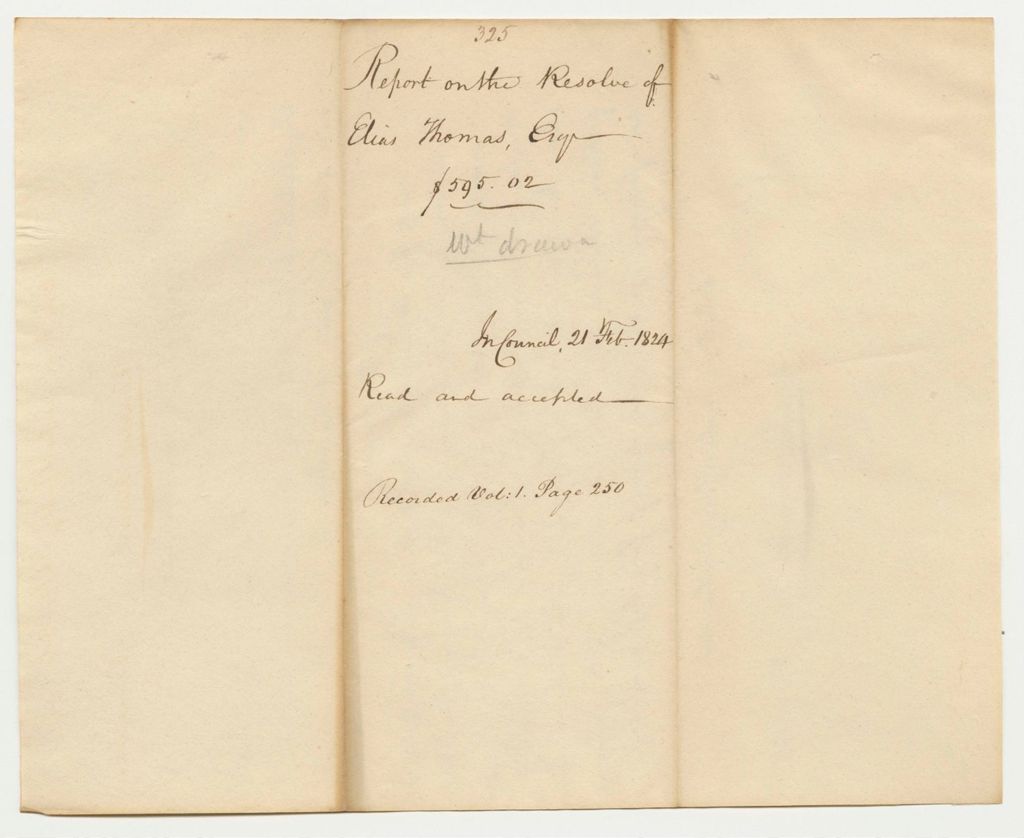 325
Report on the Resolve of
Elias Thomas, Esqr
$595.02
Wt drawn
In Council, 21 Feb. 1824
Read and accepted
Recorded Vol: 1. Page 250